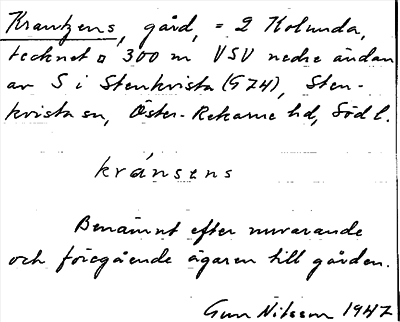 Krantzens, gård, = 2 Holunda,
tecknet ¤ 300 m VSV nedre ändan
av S i Stenkvista (G74), Sten-
kvista sn, Öster-Rekarne hd, Södl.
kránsens
Benämnt efter nuvarande
och föregående ägaren till gården.
Gun Nilsson 1947